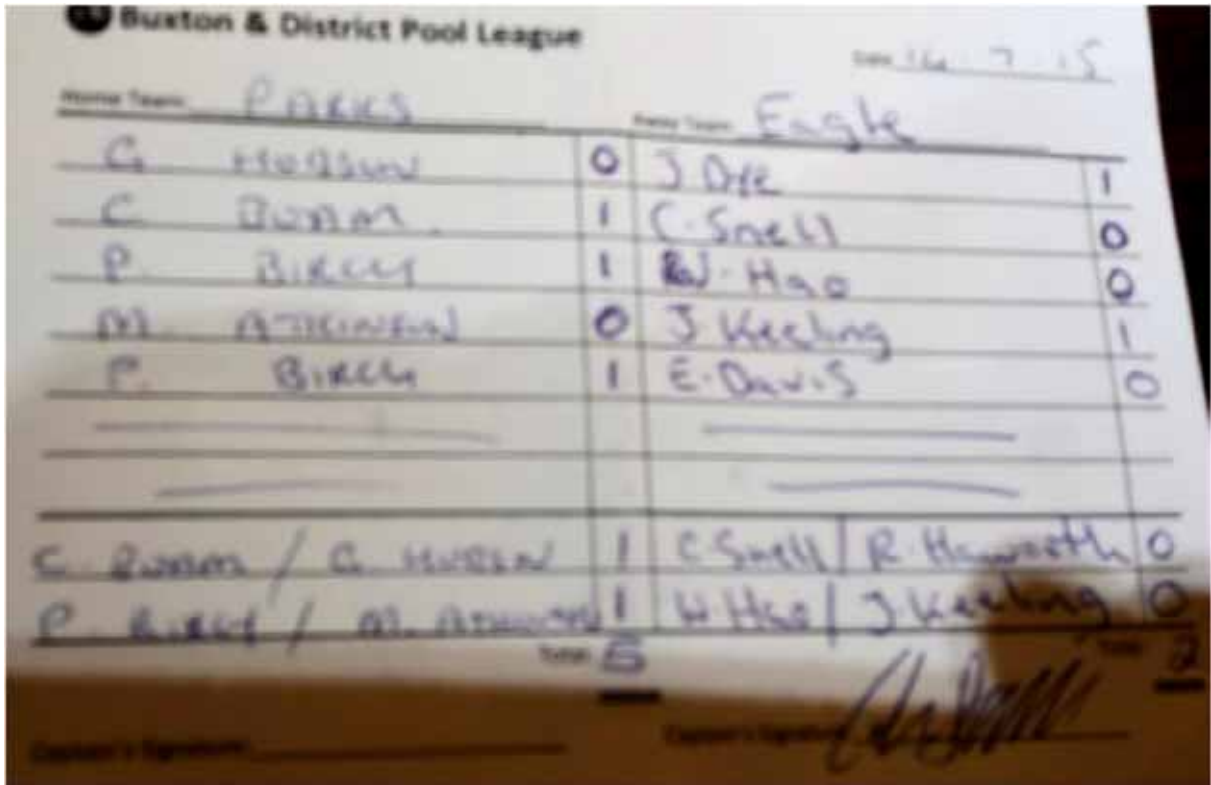 Buxton & District Pool League
Date 14.7.15
Home Team: PARKS Away Team: Eagle
G HUDSON 0 J Dye 1
C BONAM. 1 C. Snell 0
P. BIRCH 1 W. Hao 0
M. ATKINSON 0 J. Keeling 1
P. BIRCH 1 E. Davis 0
C. BONAM / G. HUDSON 1 C. Snell / R. Haworth 0
P. BIRCH / M. ATKINSON 1 W Hao / J. Keeling 0
Total: 5 Total: 2
Captain's Signature: Captain's Signature: